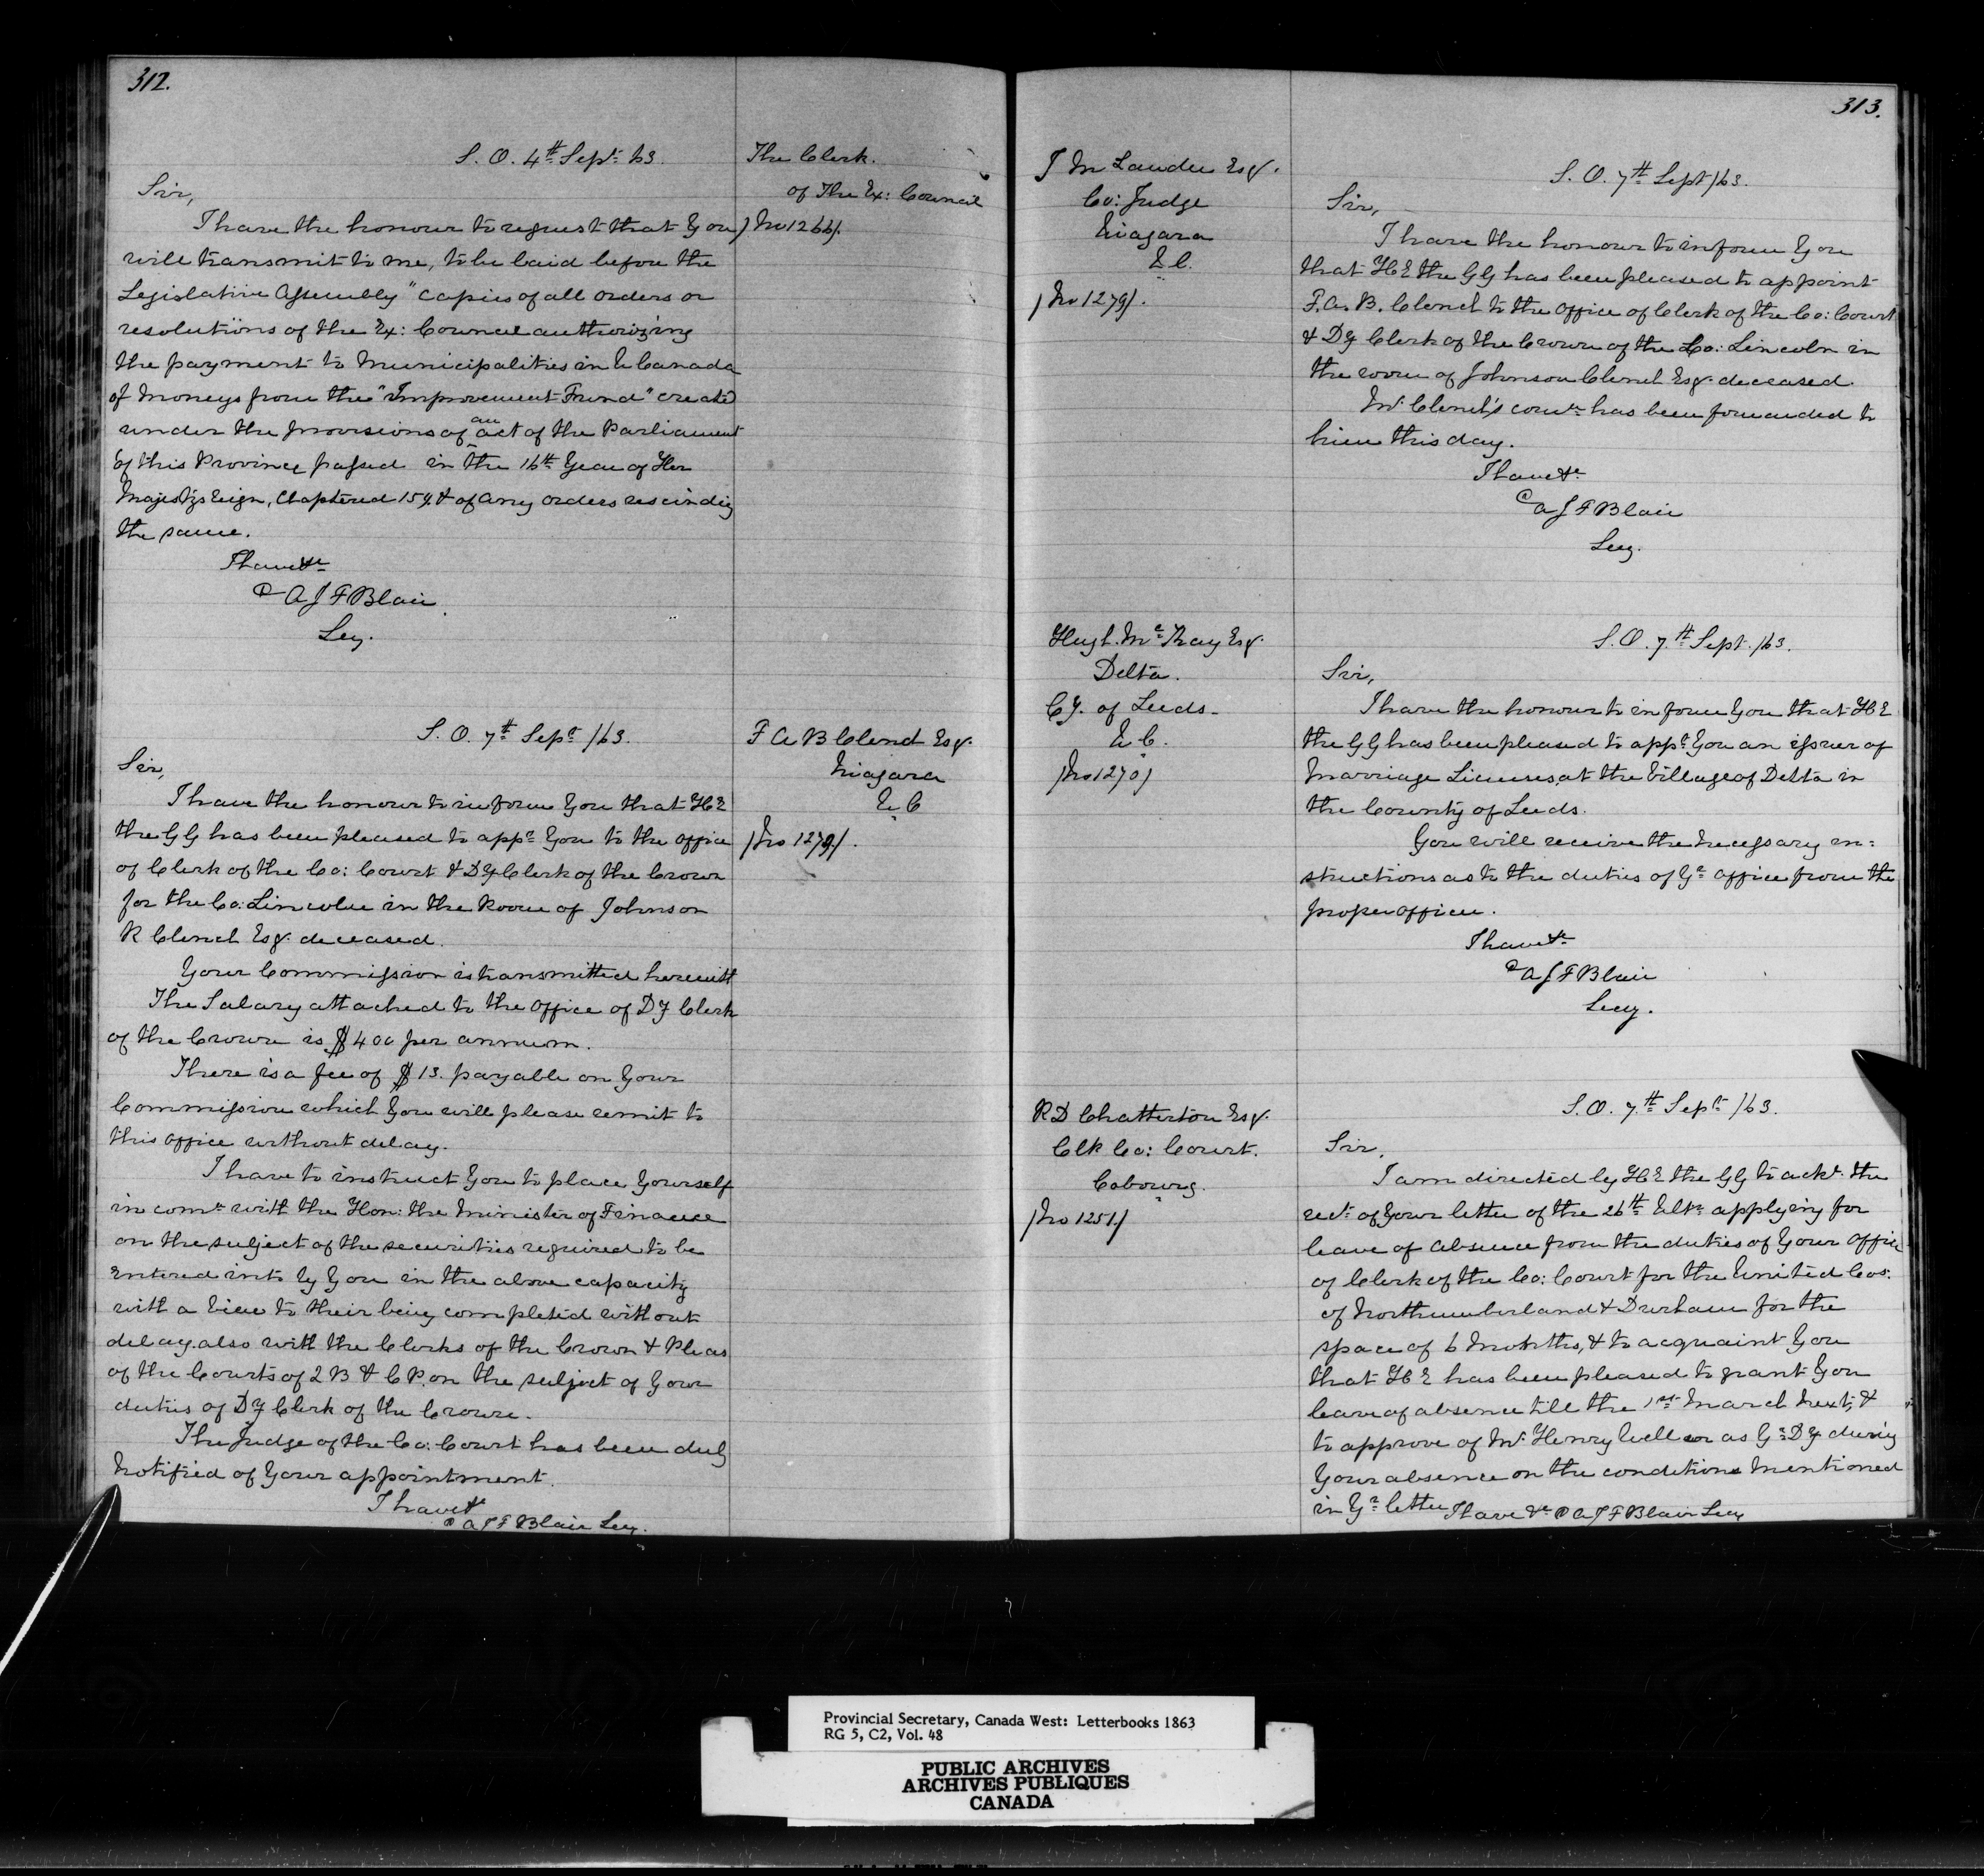 312.
S. O. 4th Sept 63.
The Clerk.
of The Ex: Council
/No 1266/.
Sir,
I have the honour to request that You
will transmit to me, to be laid before the
Legislative Assembly "copies of all orders or
resolutions of the Ex: Council authorizing
the payment to Municipalities in U Canada
of Moneys from the "Improvement Fund" created
under the provisions of an act of the Parliament
of this Province passed in the 16th Year of Her
Majesty's reign, Chaptered 159. & of any orders rescinding
the same.
I have &c
AJFBlair
Secy.
S. O. 7th Sept /63.
F A B Clench Esq.
Niagara
U. C
/No 1279/.
Sir,
I have the honour to inform You that HE
the GG has been pleased to appt You to the office
of Clerk of the Co: Court & Dy Clerk of the Crown
for the Co: Lincoln in the Room of Johnson
R Clench Esq. deceased.
Your Commission is transmitted herewith
The Salary attached to the office of Dy Clerk
of the Crown is $400 per annum.
There is a fee of $13. payable on Your
Commission which You will please remit to
this office without delay.
I have to instruct You to place Yourself
in comn with the Hon: the Minister of Finance
on the subject of the securities required to be
entered into by You in the above capacity
with a view to their being completed without
delay. also with the Clerks of the Crown & Pleas
of the Courts of Q B & C P. on the subject of Your
duties of Dy Clerk of the Crown.
The Judge of the Co: Court has been duly
Notified of Your appointment.
I have &c
AJFBlair Secy.
313.
J M Lawder Esq.
Co: Judge
Niagara
U C.
/No 1279/.
S. O. 7th Sept /63.
Sir,
I have the honour to inform You
that HE the GG has been pleased to appoint
F. A. B. Clench to the office of Clerk of the Co: Court
& Dy Clerk of the Crown of the Co: Lincoln in
the room of Johnson Clench Esq. deceased.
Mr Clench's comn has been forwarded to
him this day.
I have &c
AJFBlair
Secy.
Hugh McKay Esq.
Delta.
Cy. of Leeds.
U. C.
/No 1270/
S. O. 7th Sept. /63.
Sir,
I have the honour to inform You that HE
the GG has been pleased to appt You an issuer of
Marriage Licenses, at the Village of Delta in
the County of Leeds.
You will receive the necessary in=
structions as to the duties of Yr office from the
proper officer.
I have &c
AJFBlair
Secy.
R D Chatterton Esq.
Clk Co: Court.
Cobourg.
/No 1251/
S. O. 7th Sept /63.
Sir,
I am directed by HE the GG to ackn. the
rect of Your letter of the 26th Ulto applying for
leave of absence from the duties of Your office
of Clerk of the Co: Court for the United Cos:
of Northumberland & Durham for the
space of 6 Months, & to acquaint You
that HE has been pleased to grant You
leave of absence till the 1st March Next, &
to approve of Mr Henry as Yr Dy during
Your absence on the conditions mentioned
in Yr letter I have &c AJFBlair Secy
Provincial Secretary, Canada West: Letterbooks 1863
RG 5, C2, Vol. 48
PUBLIC ARCHIVES
ARCHIVES PUBLIQUES
CANADA